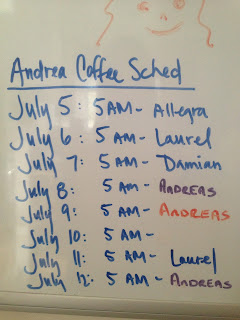 Andrea Coffee Sched
July 5: 5 AM - Allegra
July 6: 5 AM - Laurel
July 7: 5 AM - Damian
July 8: 5 AM - ANDREAS
July 9: 5 AM - ANDREAS
July 10: 5 AM -
July 11: 5 AM - Laurel
July 12: 5 AM - ANDREAS